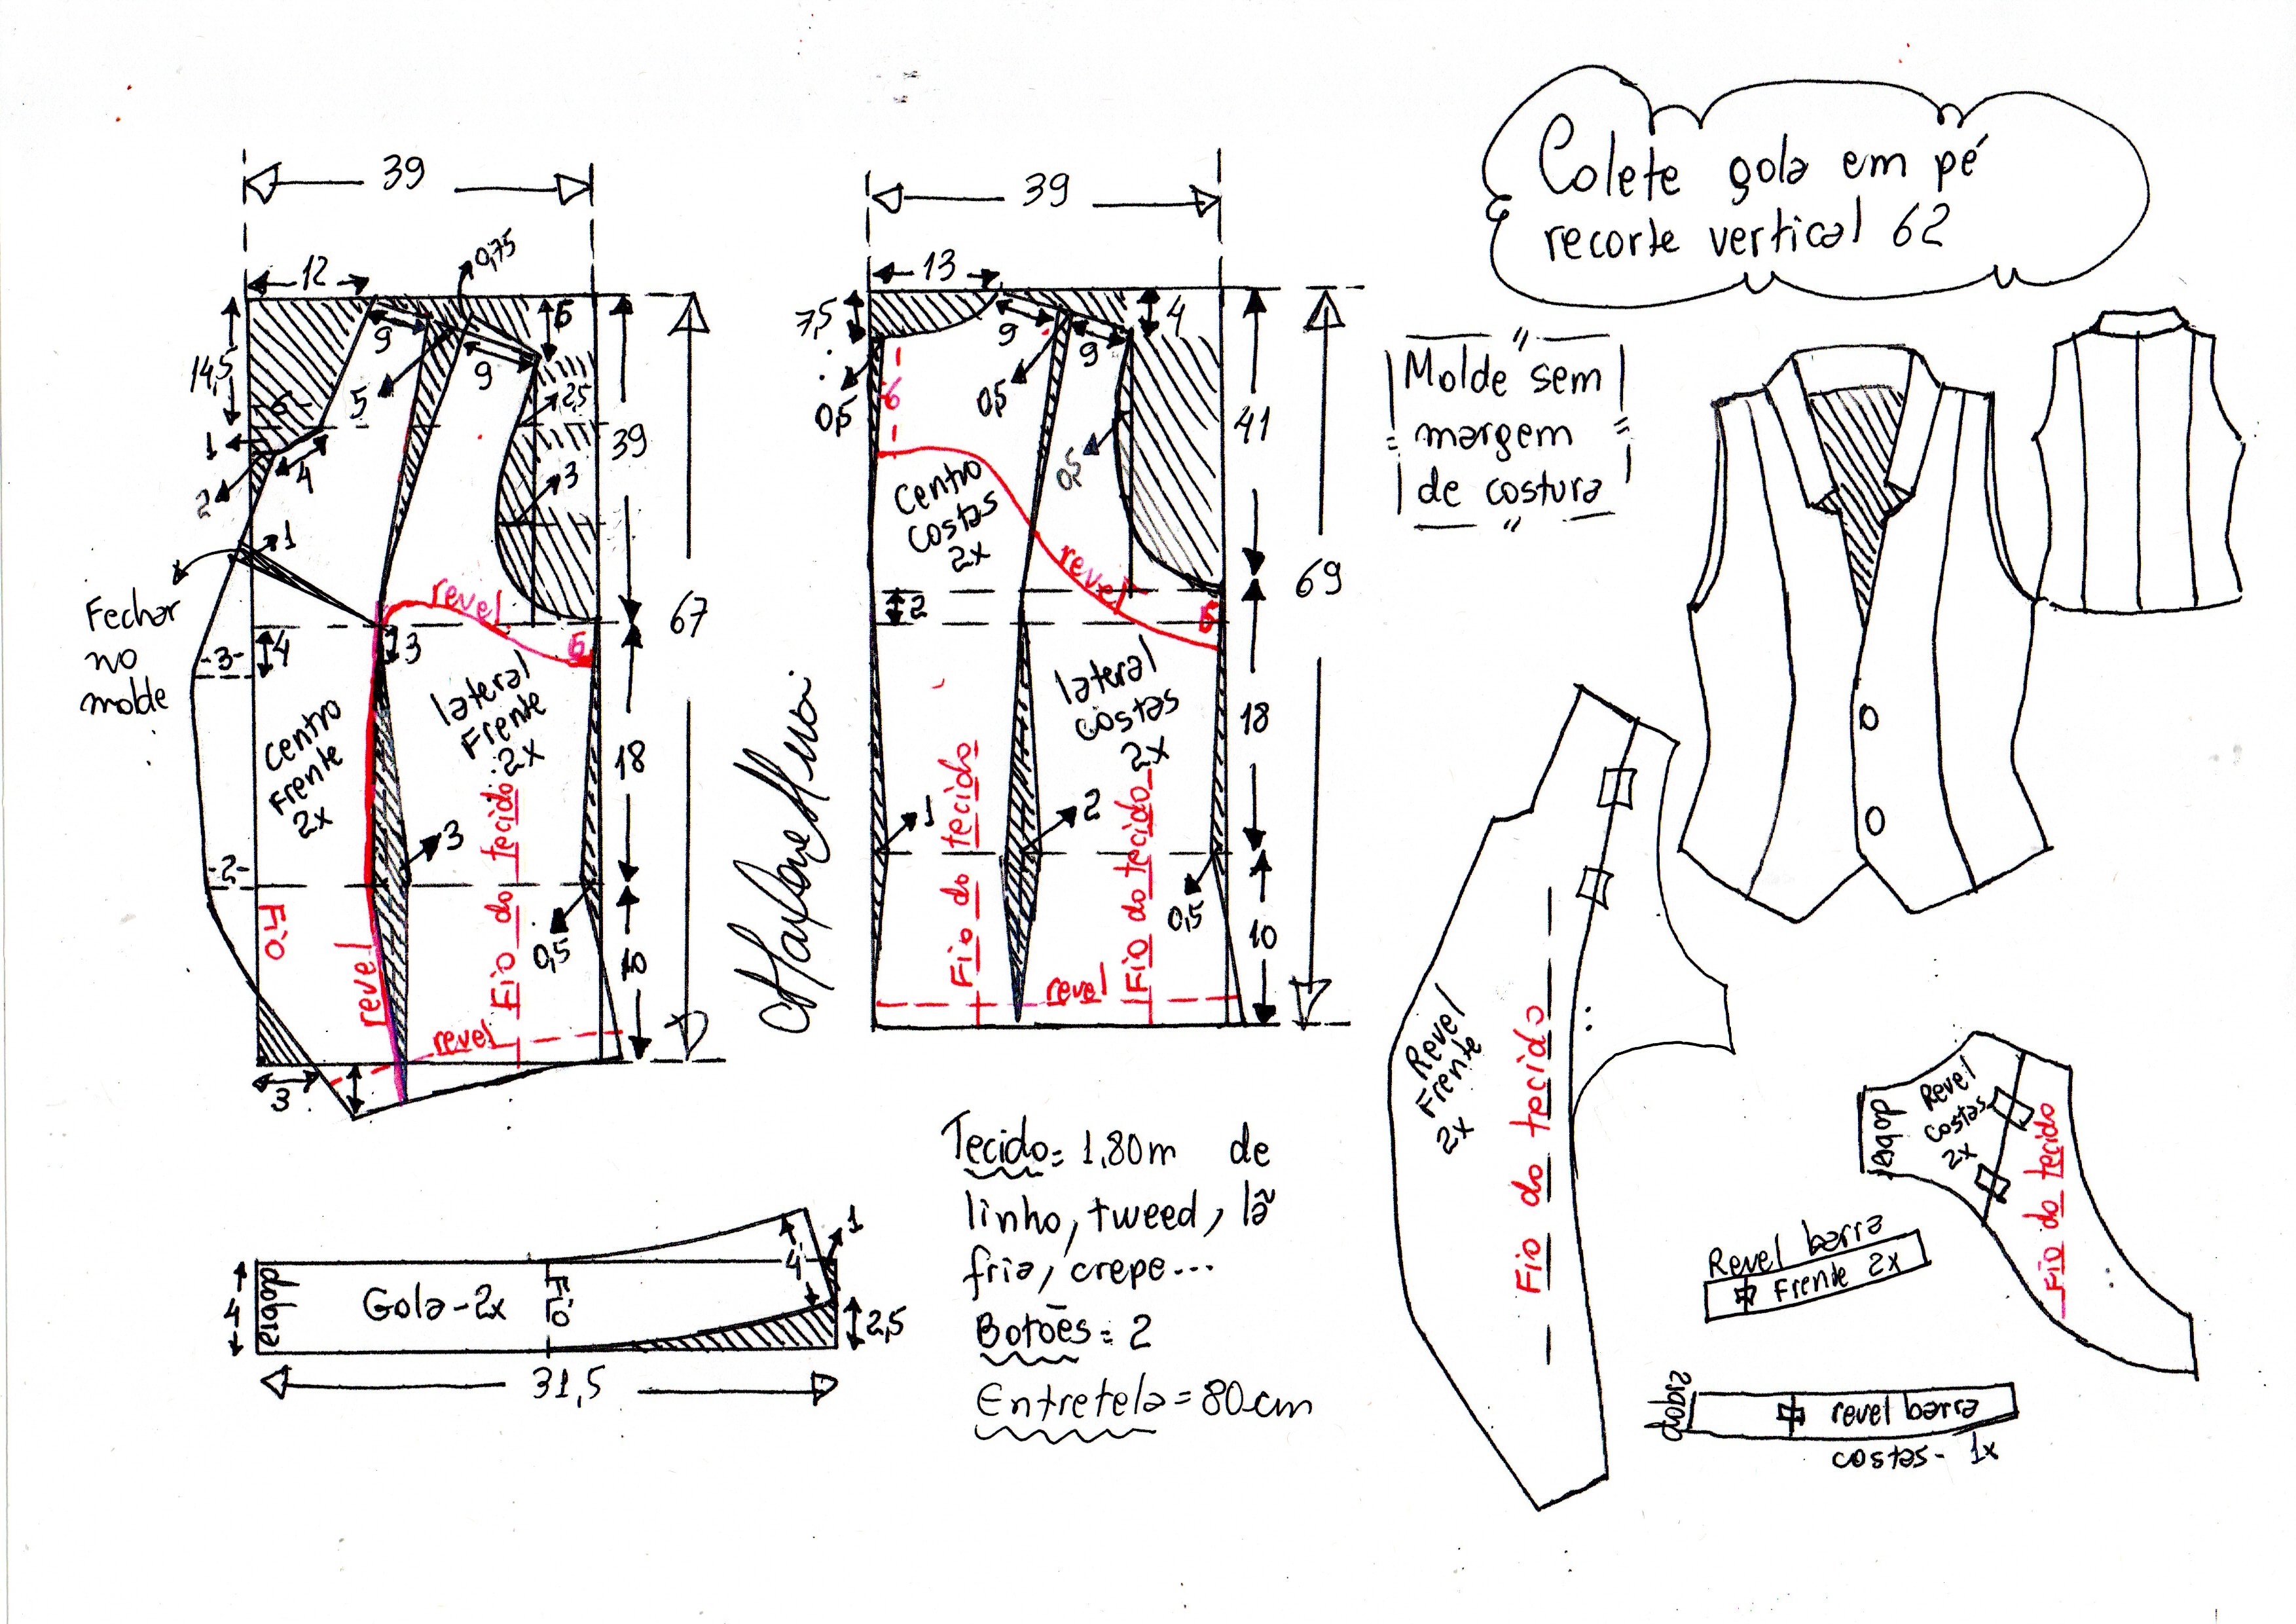 Colete gola em pé
recorte vertical 62
Molde sem
margem
de costura
39
12
0,75
14,5
9
5
9
5
2,5
39
6
1
4
2
3
1
Fechar
no
molde
revel
6
67
3
4
3
Centro
Frente
2x
lateral
Frente
2x
18
3
2
Fio
Fio do tecido
0,5
10
revel
revel
3
39
13
7,5
9
9
4
0,5
0,5
0,5
6
41
Centro
costas
2x
revel
6
69
2
lateral
costas
2x
18
1
2
0,5
10
Fio do tecido
Fio do tecido
revel
4
dobra
Gola-2x
Fio
4
1
2,5
31,5
Tecido= 1,80m de
linho, tweed, lã
fria, crepe...
Botões= 2
Entretela=80cm
Revel
Frente
2x
Fio do tecido
dobra
Revel
costas
2x
Fio do tecido
Revel barra
Frente 2x
dobra
revel barra
costas- 1x